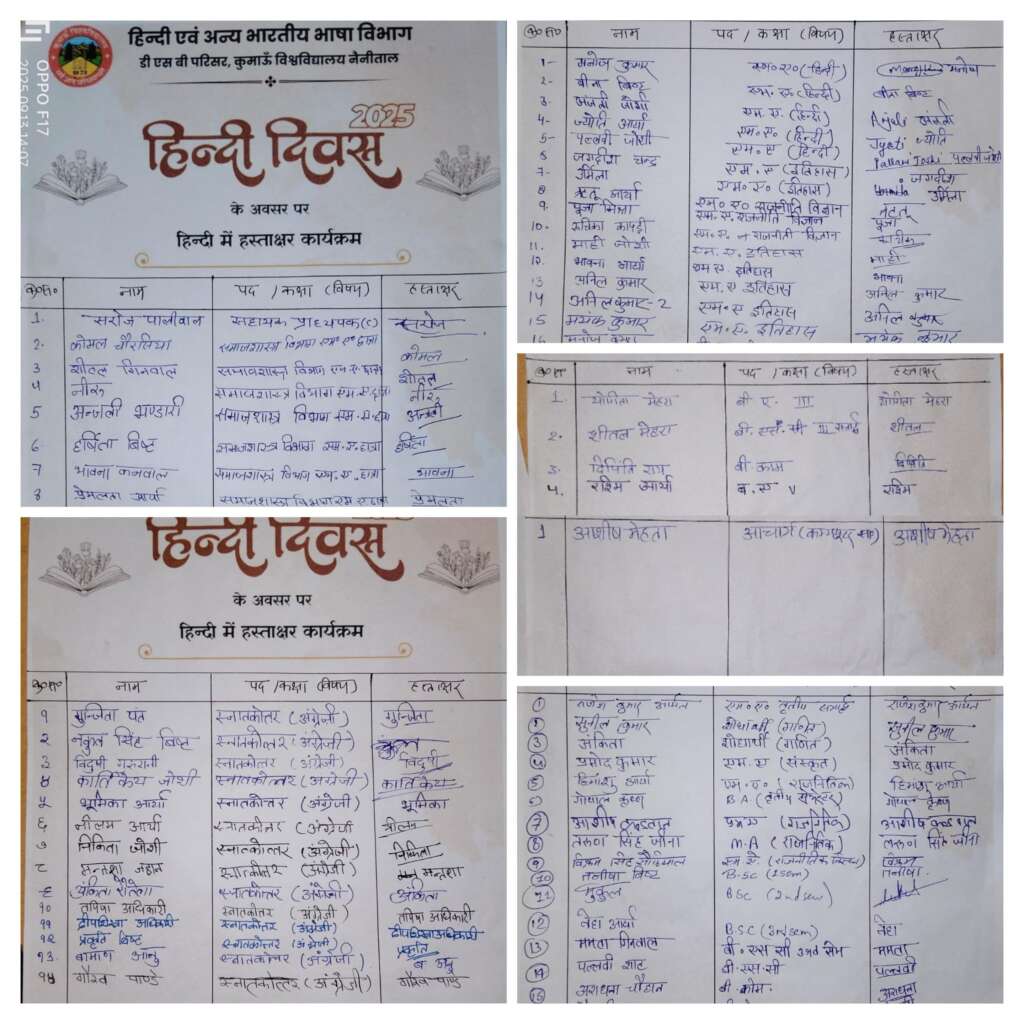 OPPO F17
2025.09.13 14:07
हिन्दी एवं अन्य भारतीय भाषा विभाग
डी एस बी परिसर, कुमाऊँ विश्वविद्यालय नैनीताल
2025
हिन्दी दिवस
के अवसर पर
हिन्दी में हस्ताक्षर कार्यक्रम
क्र०सं० नाम पद / कक्षा (विषय) हस्ताक्षर
1. सरोज पालीवाल सहायक प्राध्यपक सरोज
2. कोमल चौरसिया समाजशास्त्र विभाग एम० ए० छात्रा कोमल
3 शीतल गिनवाल समाजशास्त्र विभाग एम. ए. छात्रा शीतल
4 नीरू समाजशास्त्र विभाग एम. ए. छात्रा नीरू
5 अन्जली भण्डारी समाजशास्त्र विभाग एम. ए. छात्रा अन्जली
6. हर्षिता बिष्ट समाजशास्त्र विभाग एम. ए. छात्रा हर्षिता
7 भावना कनवाल समाजशास्त्र विभाग एम. ए. छात्रा भावना
8 प्रेमलता आर्या समाजशास्त्र विभाग एम ए छात्रा प्रेमलता
हिन्दी दिवस
के अवसर पर
हिन्दी में हस्ताक्षर कार्यक्रम
क्र०सं० नाम पद / कक्षा (विषय) हस्ताक्षर
१ गुन्जिता पंत स्नातकोतर (अंग्रेजी) गुन्जिता
२ नकुल सिंह बिष्ट स्नातकोत्तर (अंग्रेजी)
३ विदुषी गुरुरानी स्नातकोत्तर (अंग्रेजी) विदुषी
४ कार्तिकेय जोशी स्नातकोत्तर (अंग्रेजी) कार्तिकेय
५ भूमिका आर्या स्नातकोत्तर (अंग्रेजी) भूमिका
६ नीलम आर्या स्नातकोत्तर (अंग्रेजी नीलम
७ निकिता जोशी स्नातकोत्तर (अंग्रेजी) निकिता
८ मन्तशा स्नातकोत्तर (अंग्रेजी) मन्तशा
९ अंकिता स्नातकोत्तर (अंग्रेजी) अंकिता
१० अधिकारी स्नातकोतर (अंग्रेजी) अधिकारी
११ दीपशिखा अधिकारी स्नातकोत्तर (अंग्रेजी) दीपशिखा अधिकारी
१२ प्रकृति बिष्ट स्नातकोत्तर (अंग्रेजी) प्रकृति
१३. स्नातकोत्तर (अंग्रेजी)
१४ गौरव पाण्डे स्नातकोत्तर (अंग्रेजी) गौरव पाण्डे
क्र०सं० नाम पद / कक्षा (विषय) हस्ताक्षर
1- मनोज कुमार एम० ए० (हिन्दी) मनोज
2- बीना बिष्ट एम. ए. (हिन्दी) बीना बिष्ट
3- अंजली जोशी एम. ए. (हिन्दी) Anjali अंजली
4- ज्योति आर्या एम० ए० (हिन्दी) Jyoti ज्योति
5- पल्लवी जोशी एम० ए (हिन्दी) Pallavi Joshi पल्लवी जोशी
6 जगदीश चन्द्र एम. ए (इतिहास) जगदीश
7- उर्मिला एम० ए० (इतिहास) Urmila उर्मिला
8 ऋतु आर्या एम० ए० राजनीति विज्ञान
9. पूजा एम. ए. राजनीति विज्ञान पूजा
10- एम. ए. राजनीती विज्ञान
11. माही जोशी एम. ए. इतिहास माही
12. भावना आर्या एम ए. इतिहास भावना
13 अनिल कुमार एम. ए इतिहास अनिल कुमार
14 अनिल कुमार-2 एम. ए इतिहास अनिल कुमार
15 मयंक कुमार एम. ए. इतिहास मयंक कुमार
क्र०सं० नाम पद / कक्षा (विषय) हस्ताक्षर
1. योगिता मेहरा बी ए. III योगिता मेहरा
2. शीतल मेहरा बी. एस. सी III शीतल
3. राय बी. काम
4. रश्मि आर्या ब. ए V रश्मि
1 आशीष मेहता आचार्य आशीष मेहता
1 गणेश कुमार एम० ए० तृतीय
2 सुनील कुमार शोधार्थी (गणित) सुनील कुमार
3 अंकिता शोधार्थी (गणित) अंकिता
4 प्रमोद कुमार एम. ए (संस्कृत) प्रमोद कुमार
5 हिमांशु आर्या एम. ए० हिमांशु आर्या
6 गोपाल कृष्ण BA (तृतीय सेमेस्टर) गोपाल कृष्ण
7 आशीष आशीष
8 तरुण सिंह जीना M.A तरुण सिंह जीना
9 विक्रम सिंह विक्रम
10 तनीषा बिष्ट B.Sc (1sem) तनीषा
11 मुकुल BSc (2nd sem)
12 नेहा आर्या B.SC (3rd sem) नेहा
13 ममता बी० एस सी ममता
14 पल्लवी बी. एस. सी पल्लवी
15 अराधना चौहान बी. कोम. अराधना